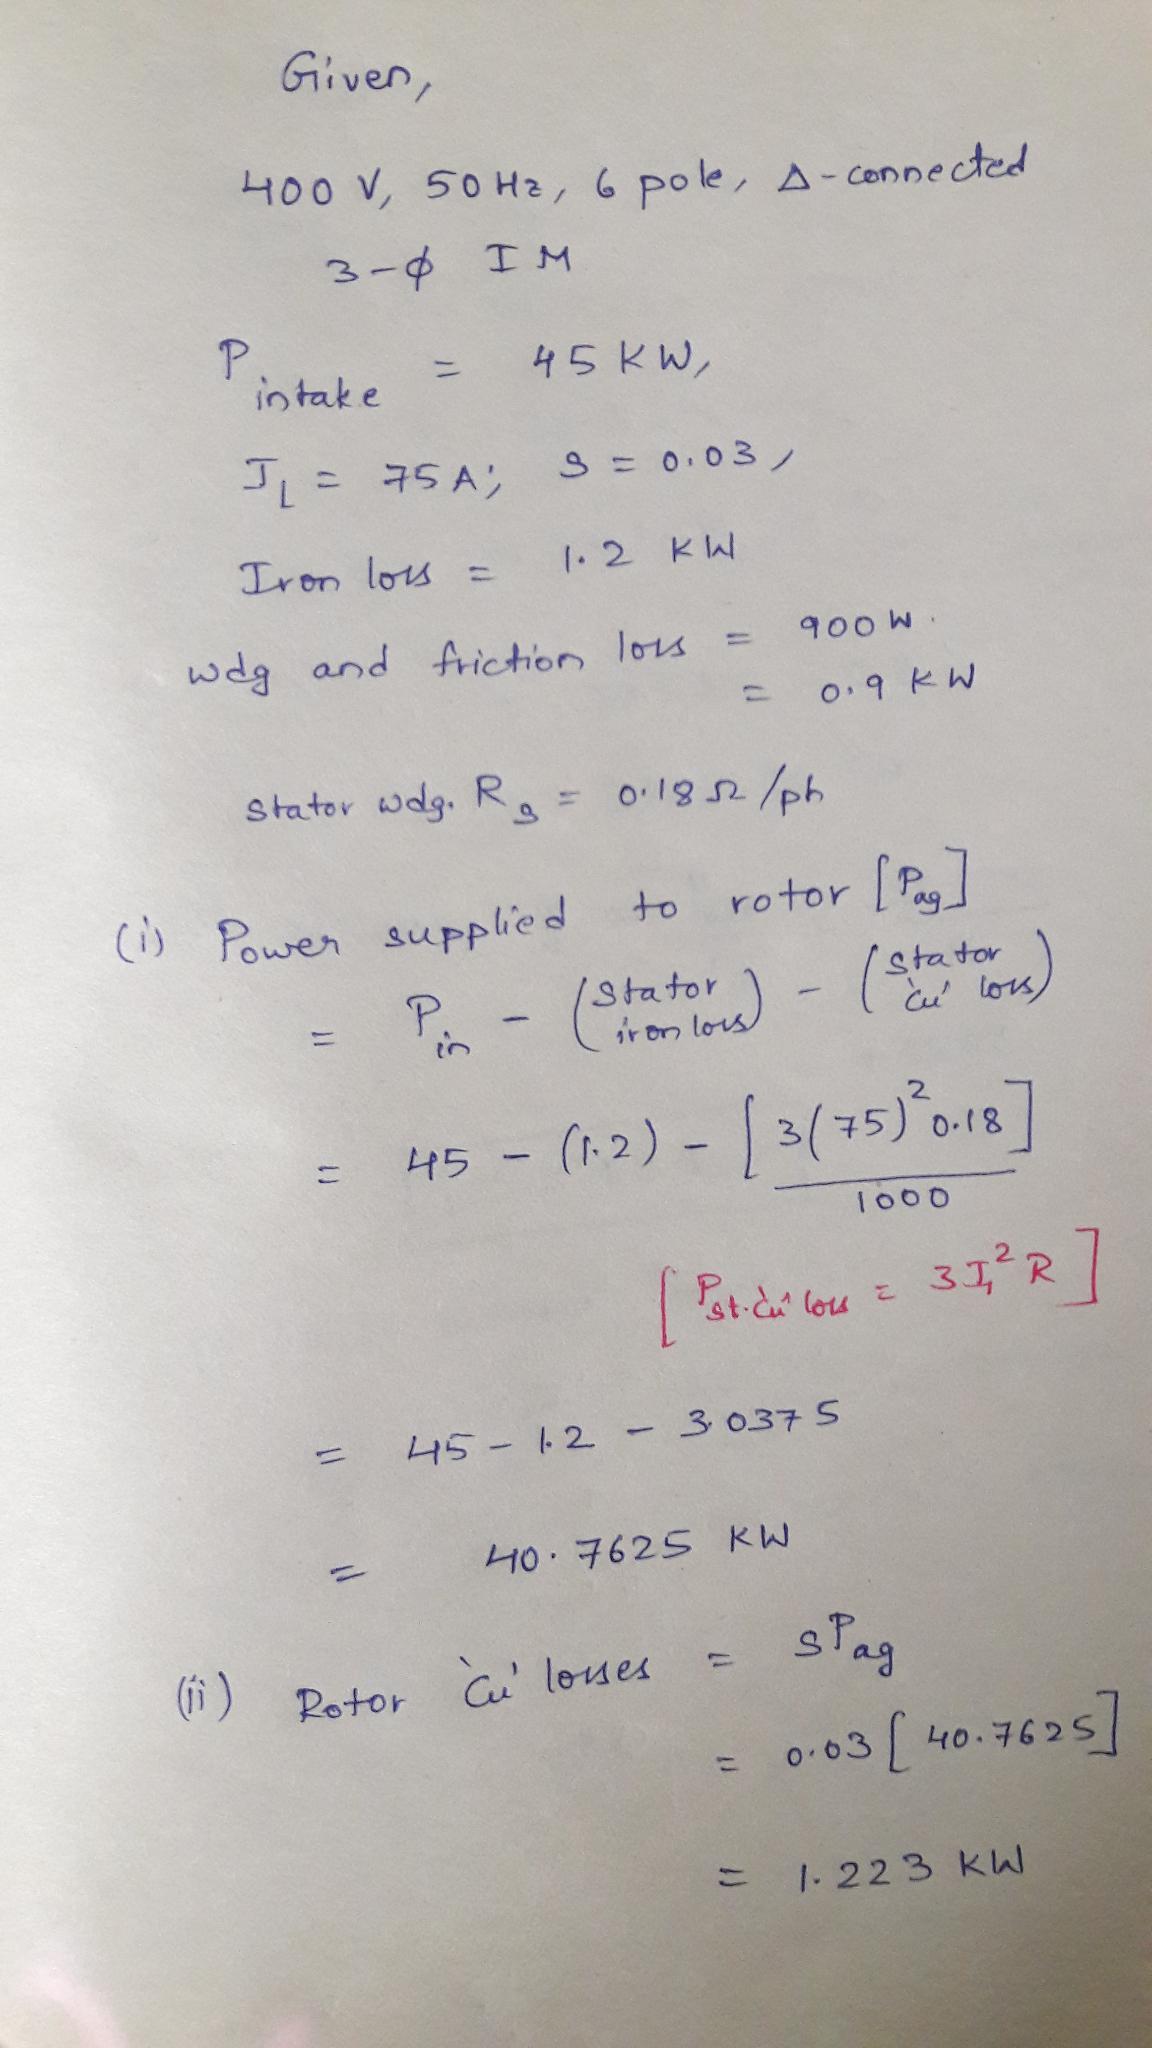 Given,
400 V, 50 Hz, 6 pole, Δ-connected
3-ϕ IM
P intake = 45 KW,
I_L = 75A; s = 0.03,
Iron loss = 1.2 KW
wdg and friction loss = 900 W.
= 0.9 KW
Stator wdg. R_s = 0.18 Ω /ph
(i) Power supplied to rotor [P_ag]
= P_in - (Stator iron loss) - (Stator 'cu' loss)
= 45 - (1.2) - [3(75)² 0.18] / 1000
[P_st.'cu' loss = 3I_1² R]
= 45 - 1.2 - 3.0375
= 40.7625 KW
(ii) Rotor 'cu' losses = sP_ag
= 0.03 [40.7625]
= 1.223 KW